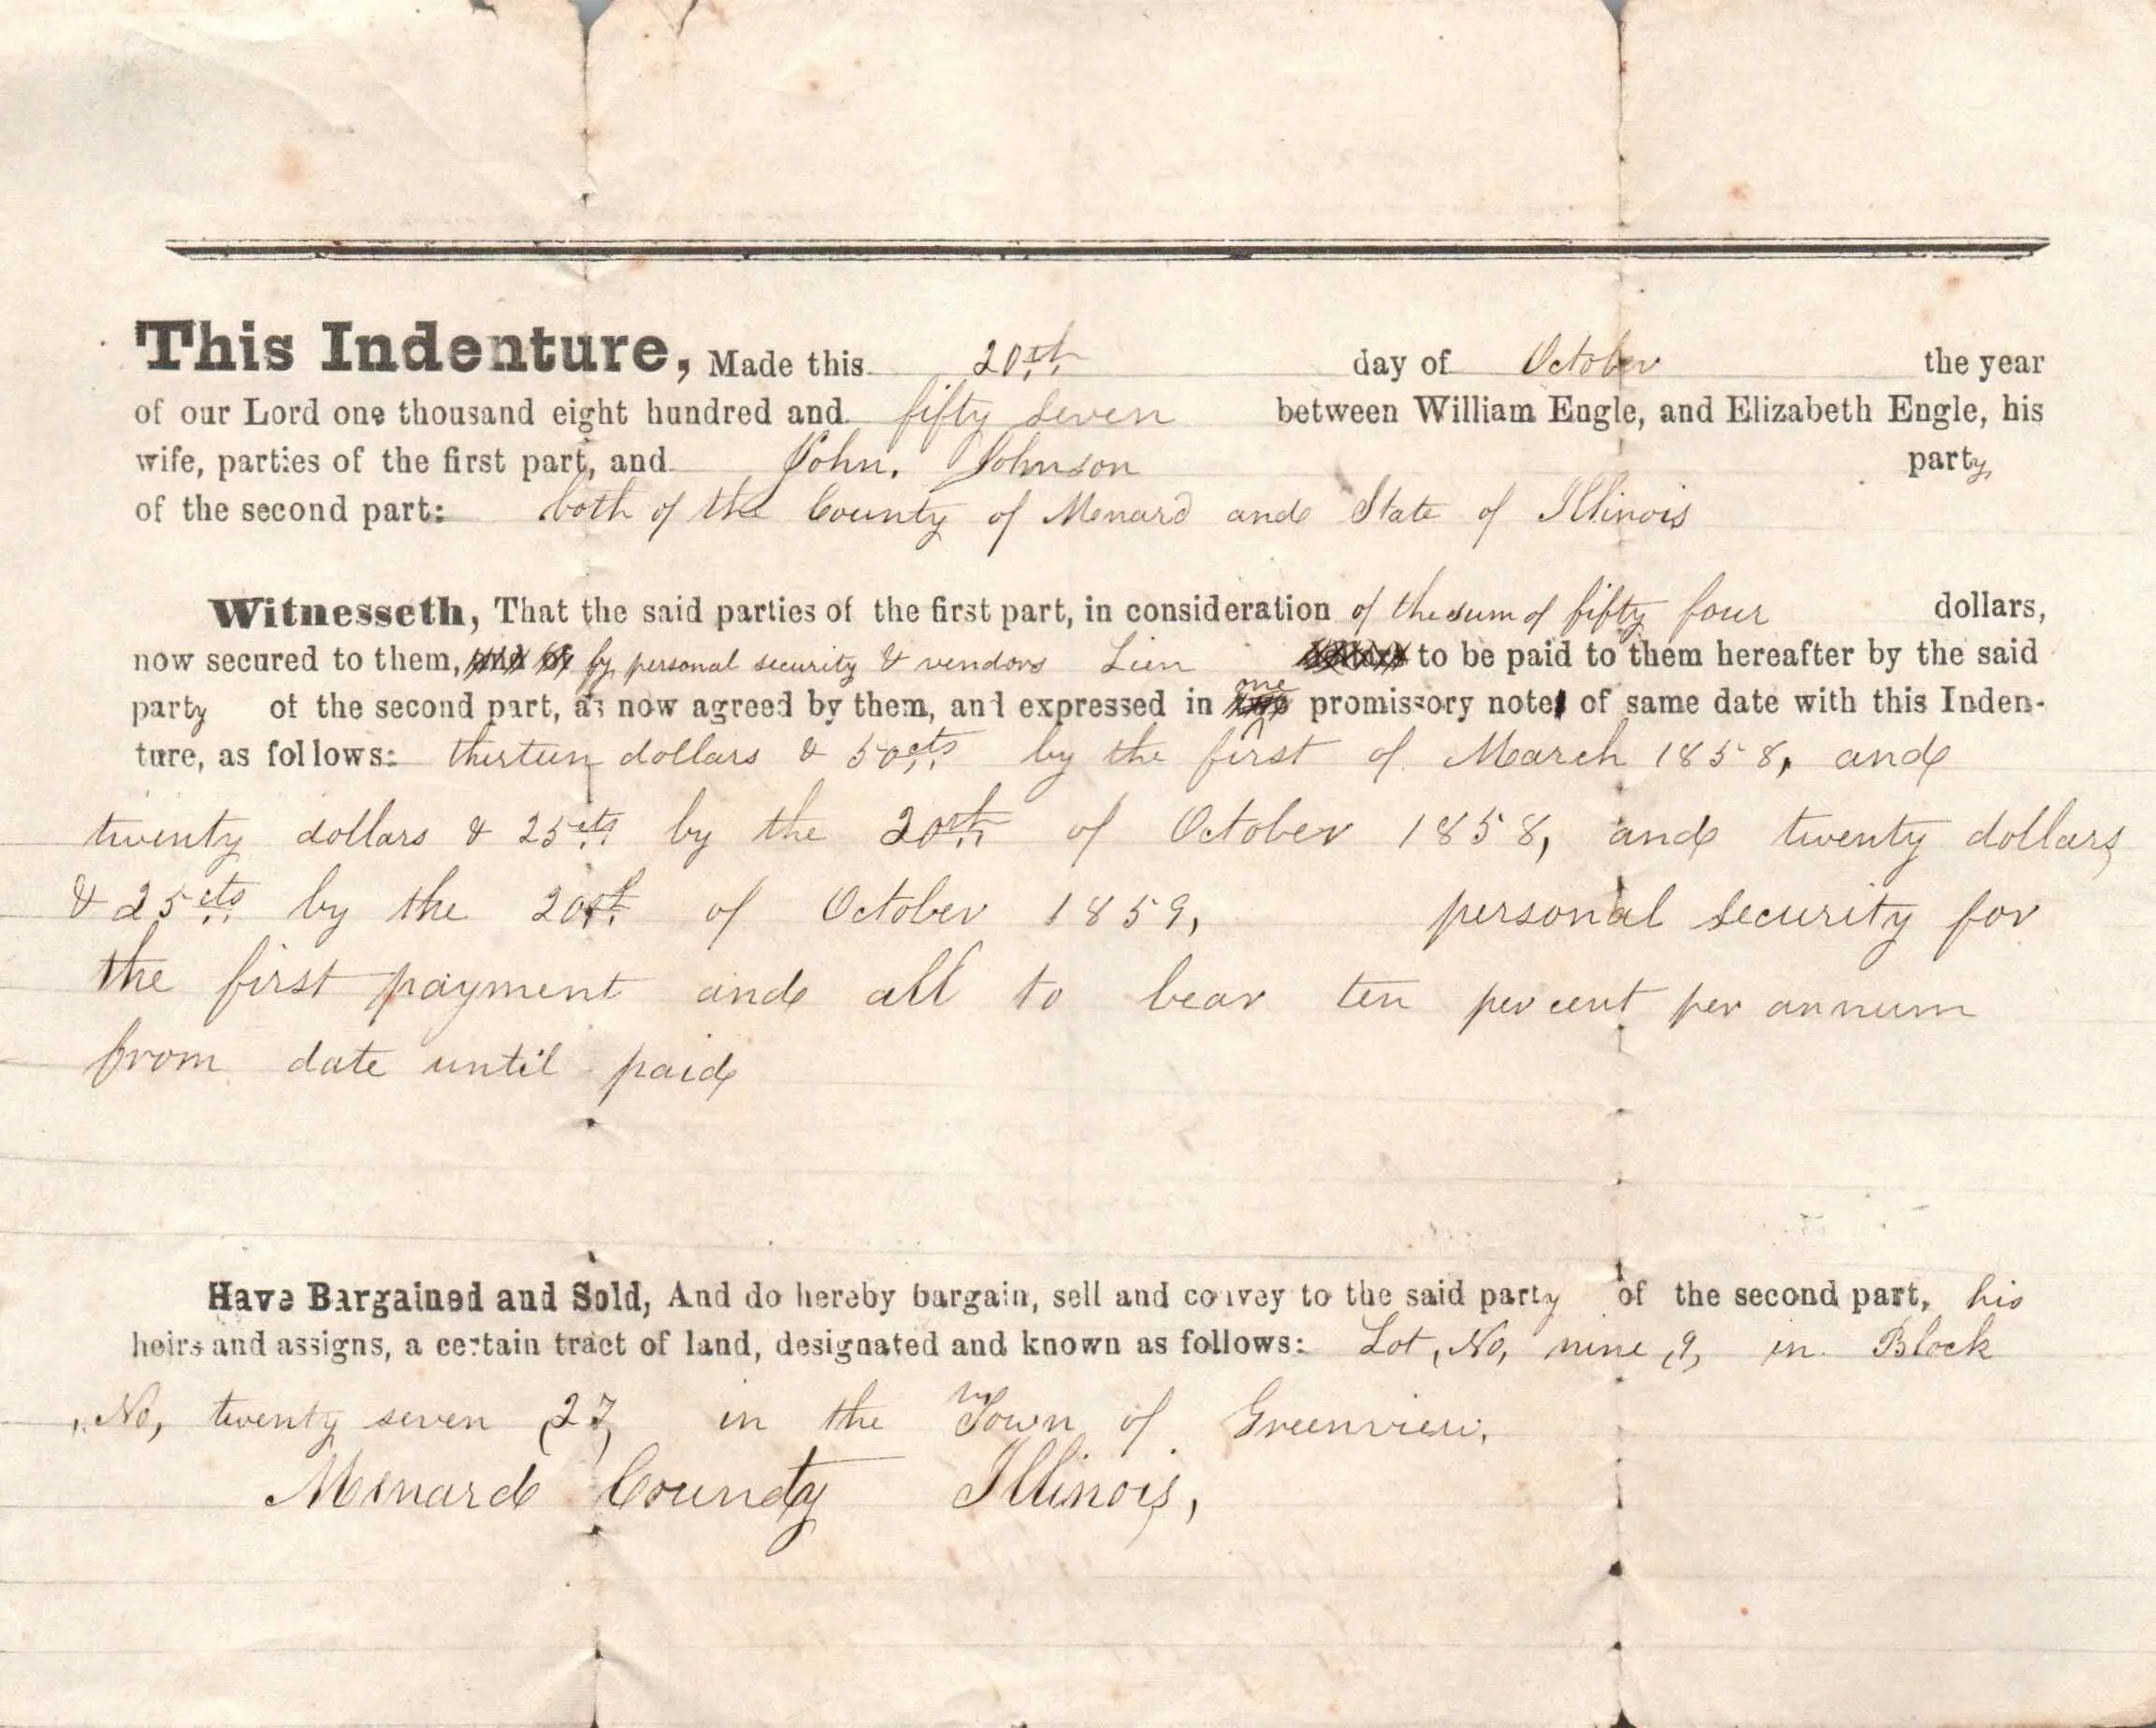 This Indenture, Made this 20th day of October the year
of our Lord one thousand eight hundred and fifty seven between William Engle, and Elizabeth Engle, his
wife, parties of the first part, and John. Johnson party
of the second part: both of the County of Menard and State of Illinois
Witnesseth, That the said parties of the first part, in consideration of the sum of fifty four dollars,
now secured to them, by personal security & vendors Lien to be paid to them hereafter by the said
party of the second part, as now agreed by them, and expressed in one promissory note of same date with this Inden-
ture, as follows: thirteen dollars & 50cts by the first of March 1858, and
twenty dollars & 25cts by the 20th of October 1858, and twenty dollars
& 25cts by the 20th of October 1859, personal security for
the first payment and all to bear ten per cent per annum
from date until paid
Have Bargained and Sold, And do hereby bargain, sell and convey to the said party of the second part, his
heirs and assigns, a certain tract of land, designated and known as follows: Lot, No, nine ,9, in Block
No, twenty seven (27, in the Town of Greenview,
Menard County Illinois,